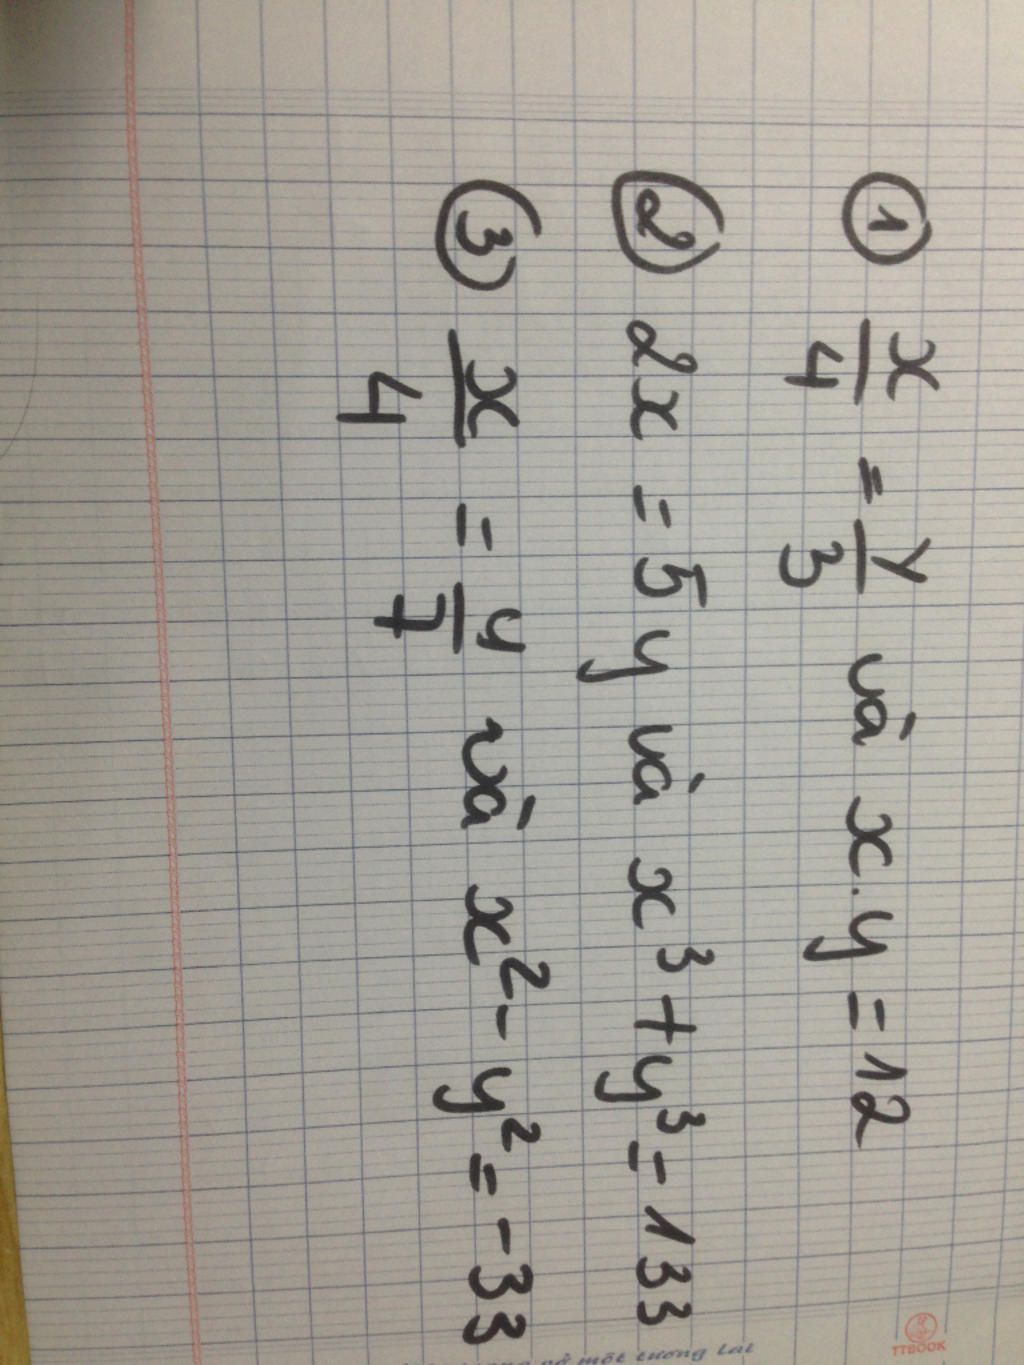 ① x/4 = y/3 và x.y = 12
② 2x = 5y và x³ + y³ = 133
③ x/4 = y/7 và x² - y² = -33
TTBOOK
một tương lai